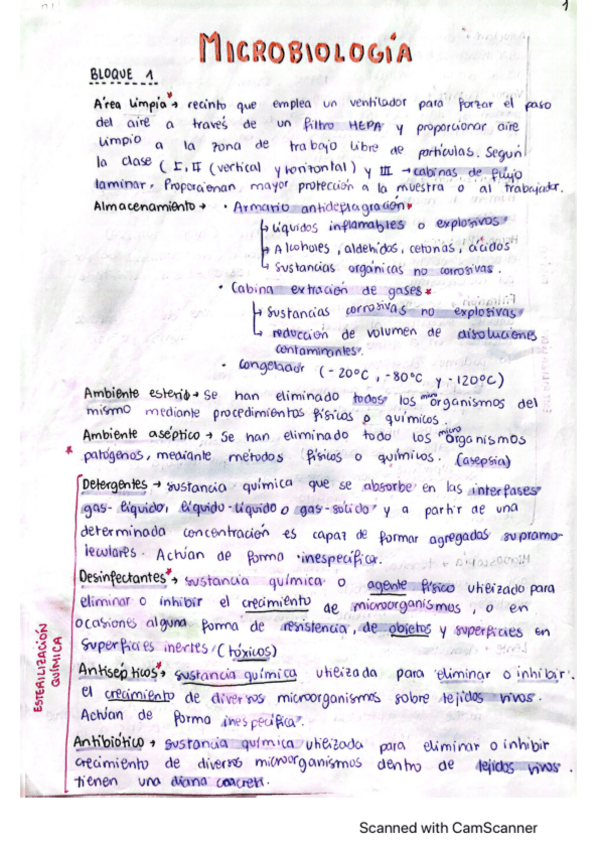 1
MICROBIOLOGÍA
BLOQUE 1.
Área limpia* → recinto que emplea un ventilador para forzar el paso
del aire a través de un filtro HEPA y proporcionar aire
limpio a la zona de trabajo libre de partículas. Según
la clase (I, II (vertical y horizontal) y III → cabinas de flujo
laminar. Proporcionan mayor protección a la muestra o al trabajador.
Almacenamiento → • Armario antideflagración*
↳ Líquidos inflamables o explosivos
↳ Alcoholes, aldehídos, cetonas, ácidos
↳ Sustancias orgánicas no corrosivas.
• Cabina extración de gases*
↳ Sustancias corrosivas no explosivas
↳ reducción de volumen de disoluciones
contaminantes.
• Congelador (-20ºC, -80ºC y -120ºC)
Ambiente esteril → Se han eliminado todos los microorganismos del
mismo mediante procedimientos físicos o químicos.
Ambiente aséptico → Se han eliminado todo los microorganismos
* patógenos, mediante métodos físicos o químicos. (asepsia)
ESTERILIZACIÓN
QUÍMICA
Detergentes → sustancia química que se absorbe en las interfases
gas-líquido, líquido-líquido o gas-sólido y a partir de una
determinada concentración es capaz de formar agregados supramo-
leculares. Actúan de forma inespecífica.
Desinfectantes* → sustancia química o agente físico utilizado para
eliminar o inhibir el crecimiento de microorganismos, o en
ocasiones alguna forma de resistencia, de objetos y superficies en
superficies inertes (tóxicos)
Antisépticos* → sustancia química utilizada para eliminar o inhibir
el crecimiento de diversos microorganismos sobre tejidos vivos.
Actúan de forma inespecífica.
Antibiótico → sustancia química utilizada para eliminar o inhibir
crecimiento de diversos microorganismos dentro de tejidos vivos.
tienen una diana concreta.
Scanned with CamScanner